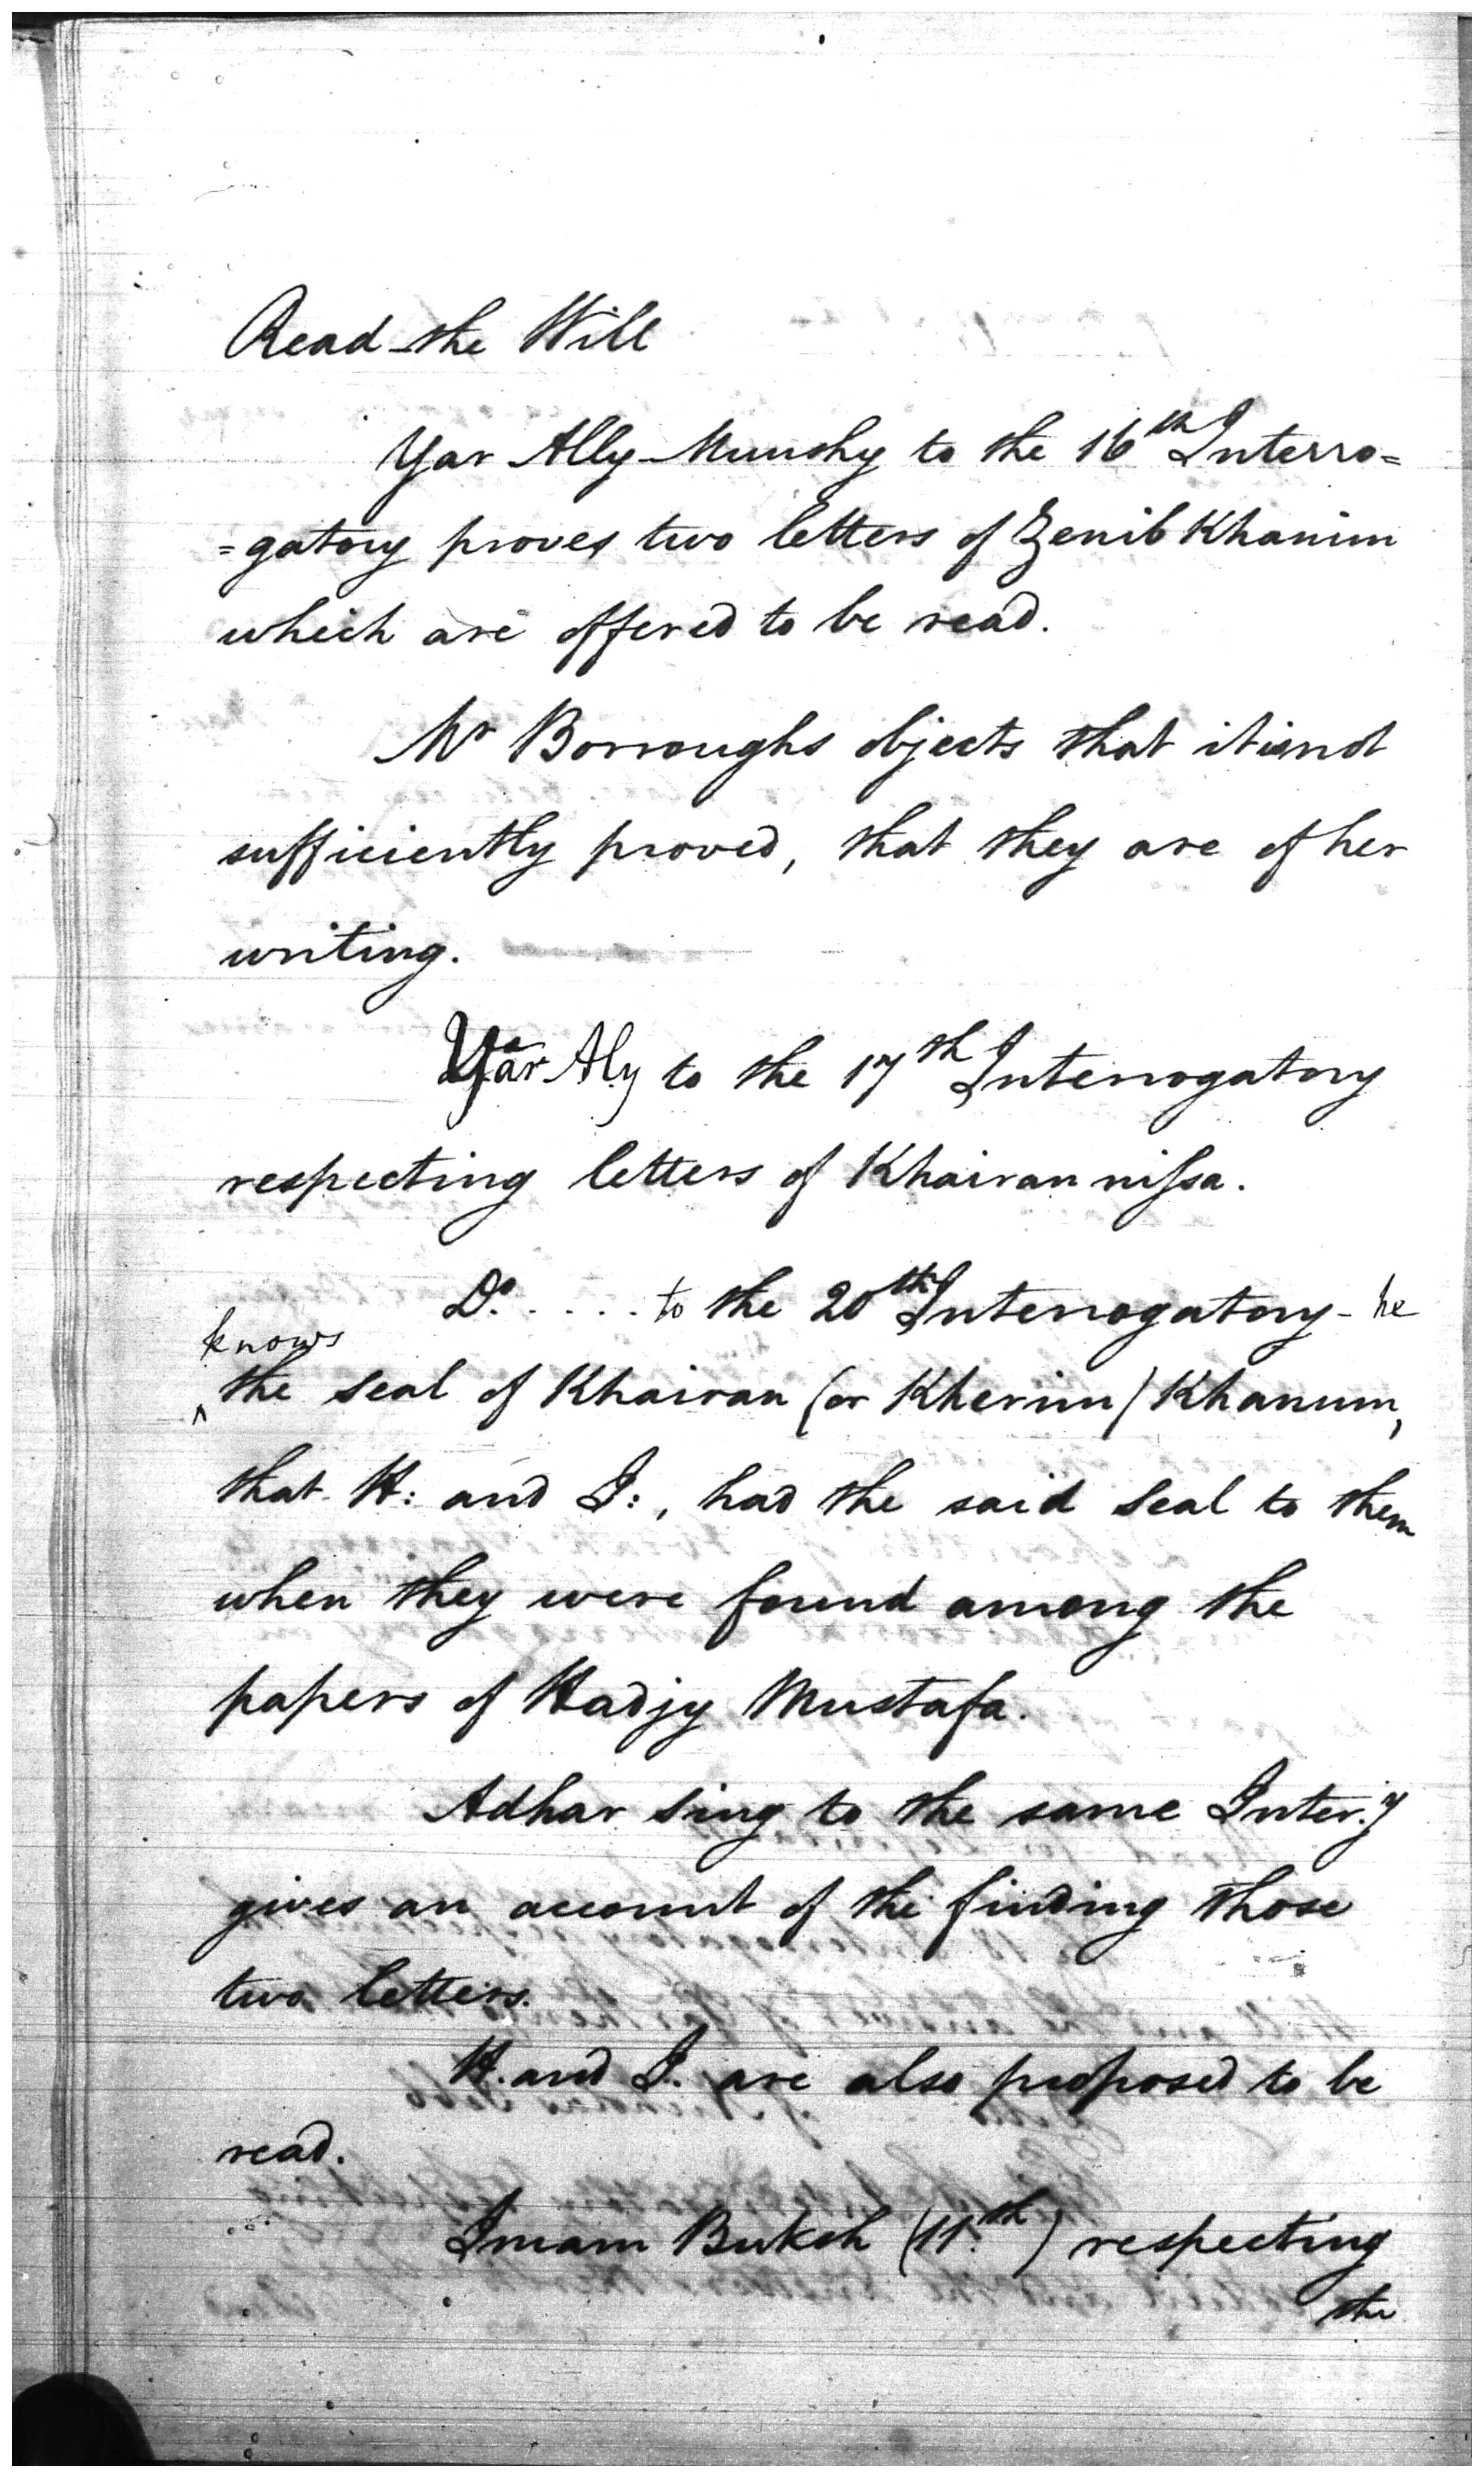 Read the Will
Yar Ally Munshy to the 16th Interro=
=gatory proves two letters of Zenib Khanim
which are offered to be read.
Mr Borroughs objects that it is not
sufficiently proved, that they are of her
writing.
Yar Aly to the 17th Interrogatory
respecting letters of Khairan nissa.
Do. .... to the 20th Interrogatory - he
knows
^ the seal of Khairan (or Kherim) Khanum,
that H: and I:, had the said Seal to them
when they were found among the
papers of Hadjy Mustafa.
Adhar Sing to the same Inter.y
gives an account of the finding those
two letters.
H. and I. are also proposed to be
read.
Imam Buksh (11.th) respecting
the